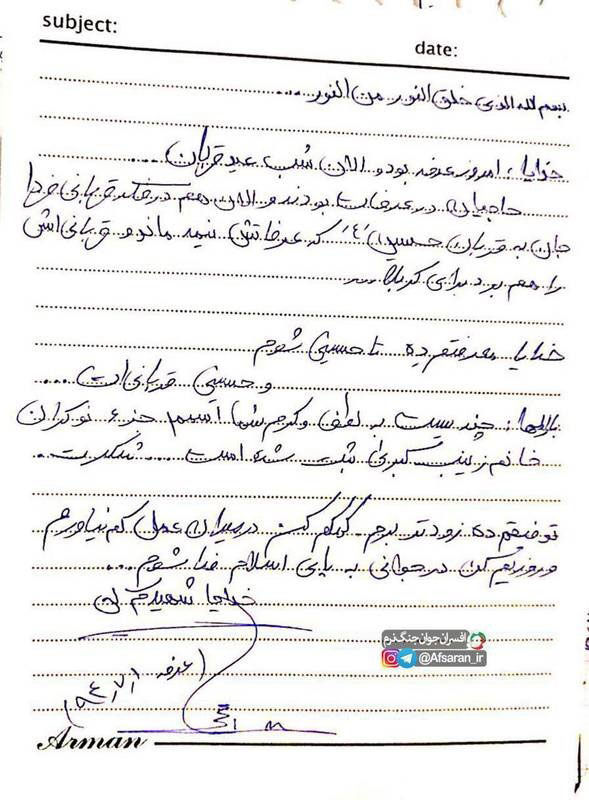 subject:
date:
بسم الله الذی خلق النور من النور...
خدایا، امروز عرفه بود و الان شب عید قربان....
حاجیان در عرفات بودند و الان هم در فکر قربانی فردا
جان به قربان حسین(ع) که عرفاتش نیمه ماند و قربانی‌اش
را هم برد برای کربلا...
خدایا معرفتم ده تا حسینی شوم
و حسینی قربانی‌ات....
بارالها، چندیست به لطف و کرم شما اسمم جزء نوکران
خانم زینب کبری ثبت شده است... شکرت..
توفیقم ده زودتر بروم. کمکم کن در میدان عمل کم نیاورم
و روزیم کن در جوانی به پای اسلام فنا شوم...
خدایا شهیدم کن
افسران جوان جنگ نرم
@Afsaran_ir
عرفه ۹۴،۷،۱
Arman